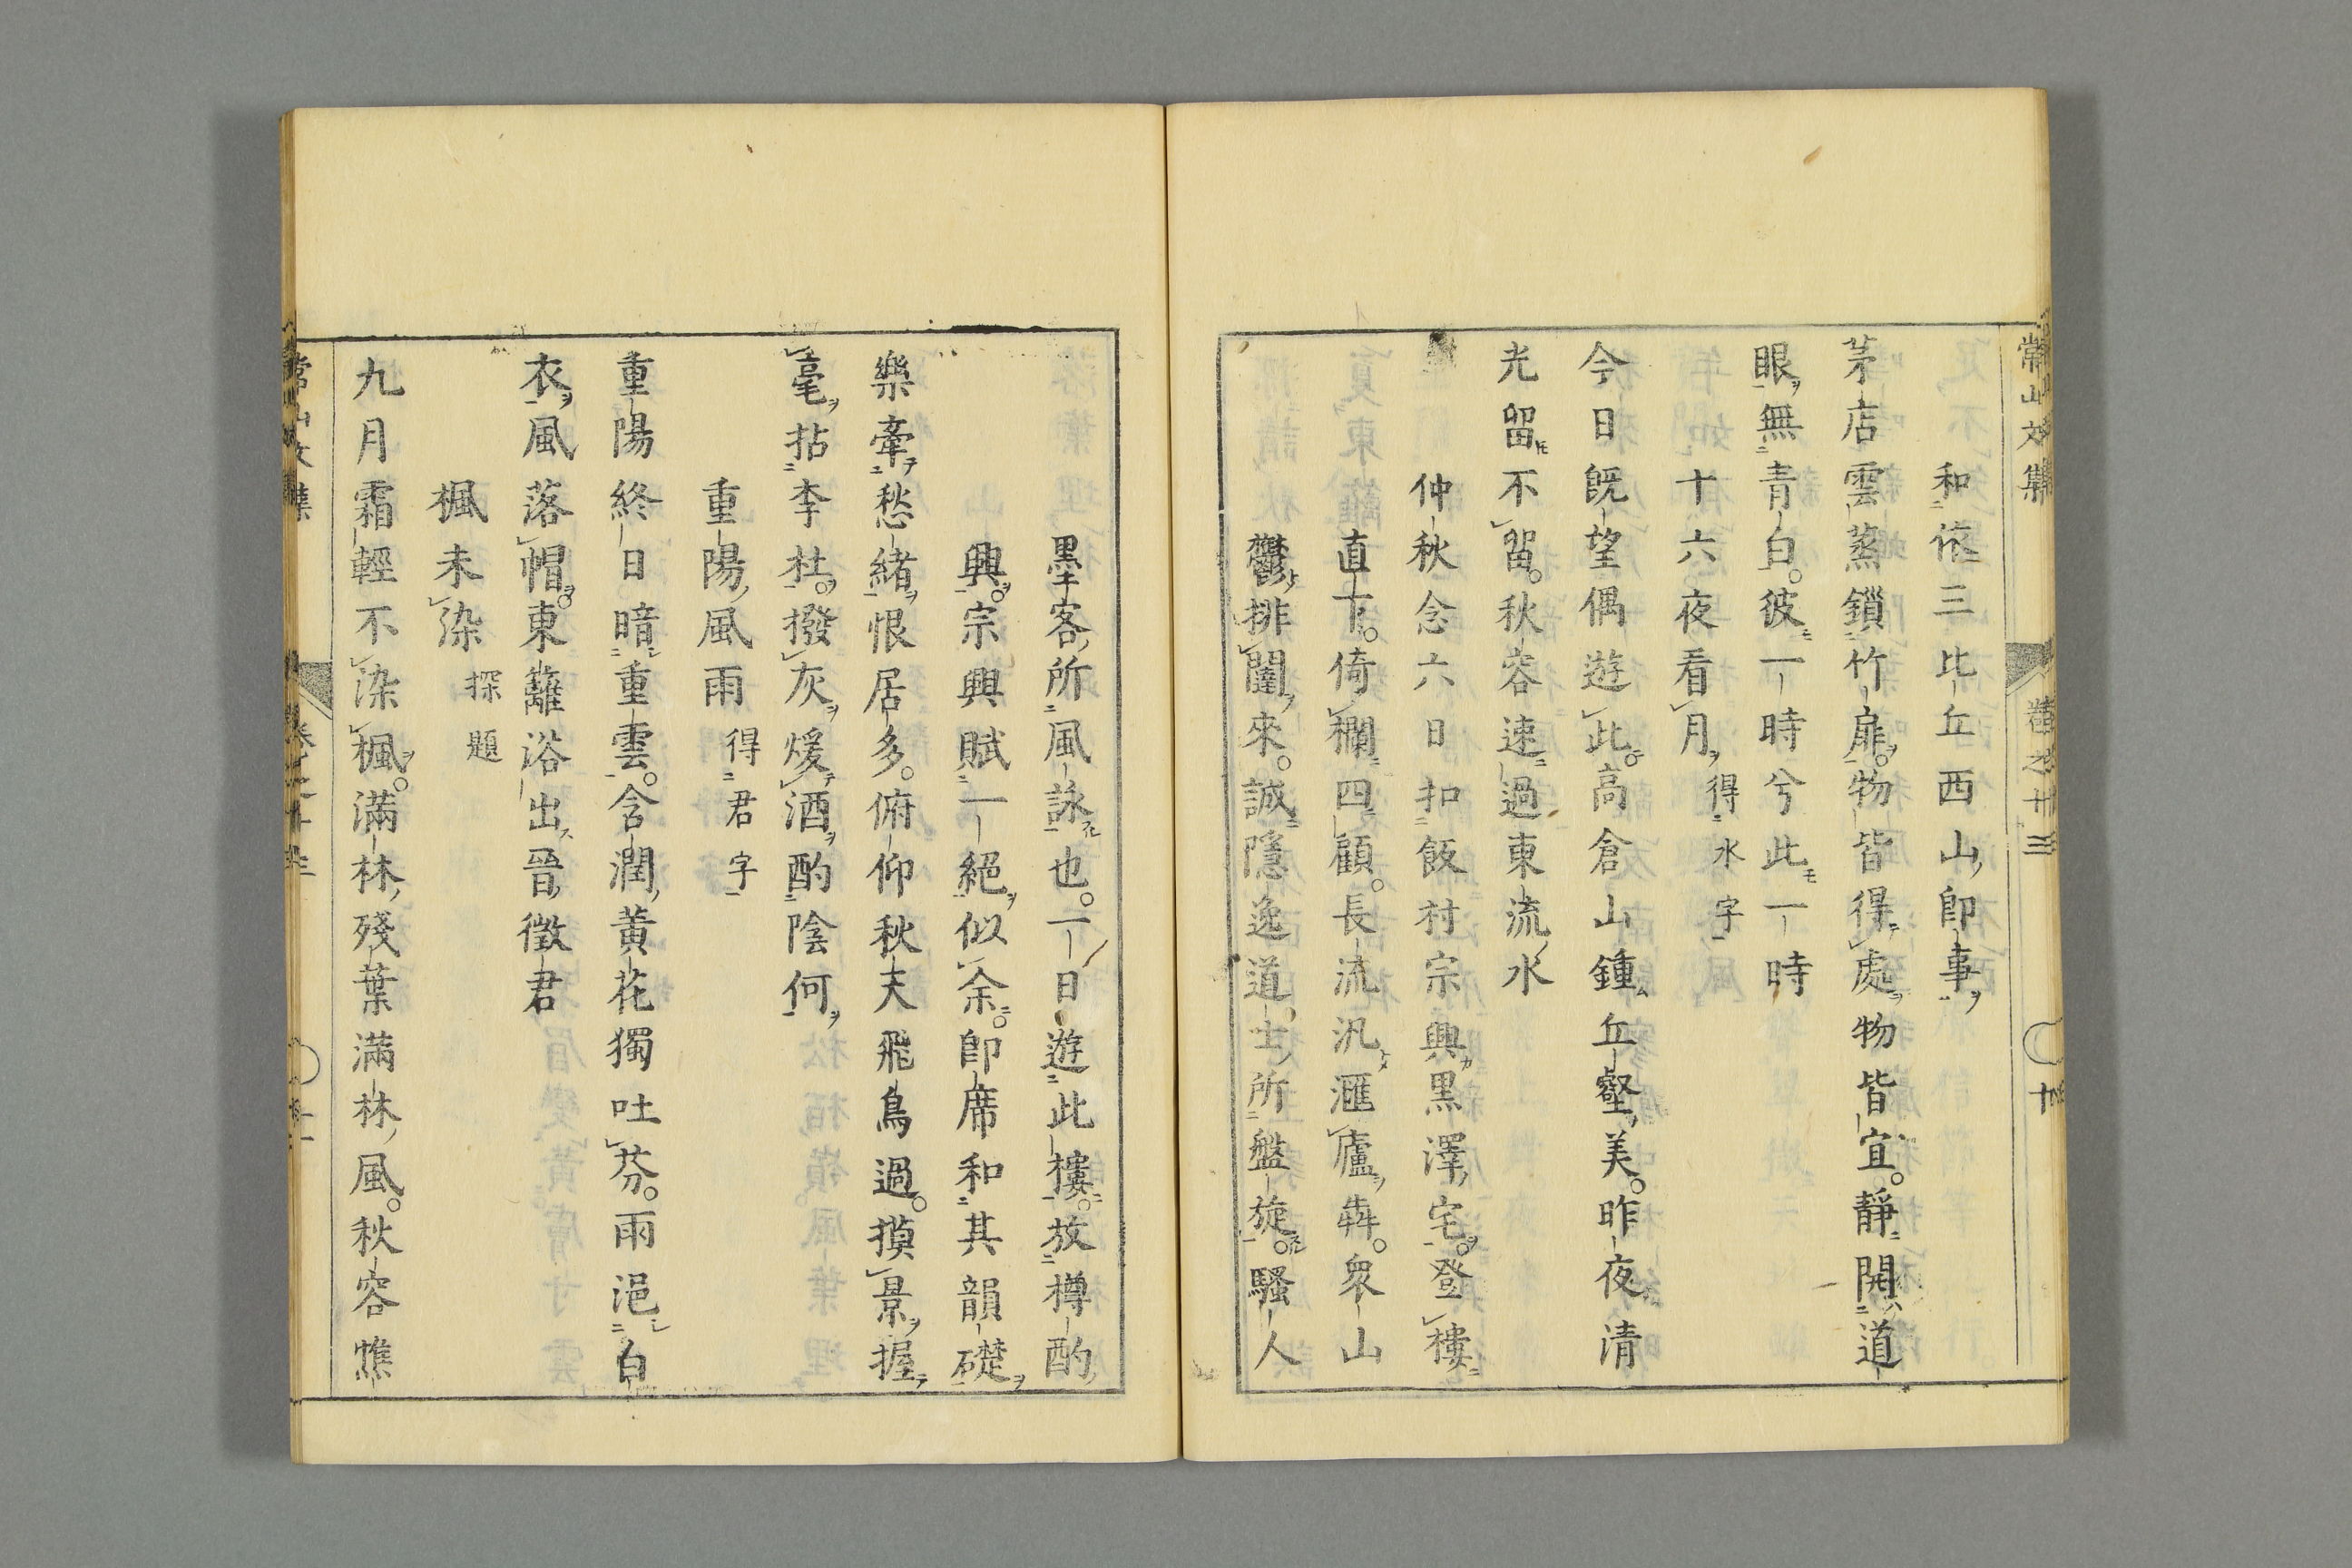 常山文集
卷之十三
十
和依三比丘西山即事
茅店雲蒸鎖竹扉物皆得處物皆宜靜開道
眼無青白彼一時兮此一時
十六夜看月得水字
今日既望偶遊此高倉山鍾丘壑美昨夜清
光留不留秋容速過東流水
仲秋念六日扣飯村宗興黒澤宅登樓
直下倚欄四顧長流汎滙廬犇衆山
鬱排闥來誠隱逸道士所盤旋騷人
墨客所風詠也一日遊此樓放樽酌
興宗興賦一絕似余即席和其韻礎
樂牽愁緒恨居多俯仰秋天飛鳥過摸景握
毫拈李杜撥灰煖酒酌陰何
重陽風雨得君字
重陽終日暗重雲含潤黃花獨吐芬雨浥白
衣風落帽東籬浴出晉徵君
楓未染探題
九月霜輕不染楓滿林殘葉滿林風秋容憔
常山文集